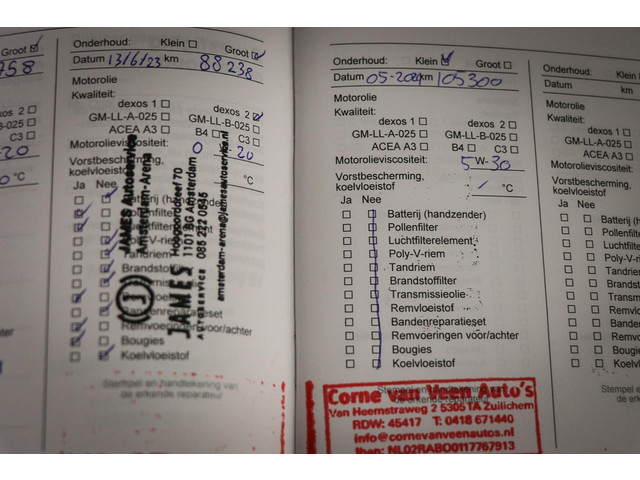 Groot
758
C3
Onderhoud: Klein Groot
Datum 13/6/23 km 88238
Motorolie
Kwaliteit:
dexos 1 dexos 2
GM-LL-A-025 GM-LL-B-025
ACEA A3 B4 C3
Motorolieviscositeit: 0 20
Vorstbescherming,
koelvloeistof °C
Ja Nee
Batterij (handzender)
Pollenfilter
Luchtfilterelement
Poly-V-riem
Tandriem
Brandstoffilter
Transmissieolie
Remvloeistof
Bandenreparatieset
Remvoeringen voor/achter
Bougies
Koelvloeistof
Stempel en handtekening van
de erkende reparateur
JAMES Autoservice
Amsterdam-Arena
Hoogoorddreef 70
1101 BG Amsterdam
085 222 0545
amsterdam-arena@jamesautoservice.nl
JAMES
AUTOSERVICE
Onderhoud: Klein Groot
Datum 05-2024 km 105300
Motorolie
Kwaliteit:
dexos 1 dexos 2
GM-LL-A-025 GM-LL-B-025
ACEA A3 B4 C3
Motorolieviscositeit: 5 W- 30
Vorstbescherming,
koelvloeistof °C
Ja Nee
Batterij (handzender)
Pollenfilter
Luchtfilterelement
Poly-V-riem
Tandriem
Brandstoffilter
Transmissieolie
Remvloeistof
Bandenreparatieset
Remvoeringen voor/achter
Bougies
Koelvloeistof
Stempel en handtekening van
de erkende reparateur
Corne van Veen Auto's
Van Heemstraweg 2 5305TA Zuilichem
RDW: 45417 T: 0418 671440
info@cornevanveenautos.nl
Iban: NL02RABO0117767913
Onderhoud: Klein
Datum
Motorolie
Kwaliteit:
dexos 1
GM-LL-A-025
ACEA A3
Motorolieviscositeit:
Vorstbescherming,
koelvloeistof
Ja Nee
Batterij
Pollenfilter
Poly-V-riem
Tandriem
Bougies
Koelvloeistof
Stempel en
de erkende